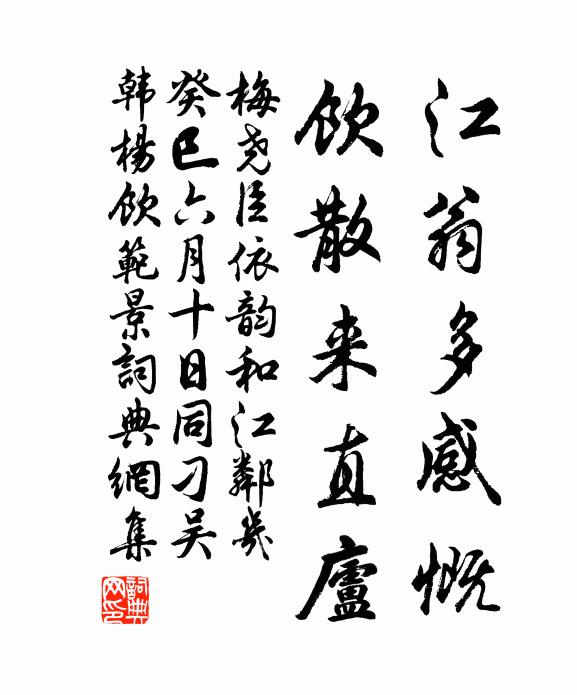 江翁多感慨
饮散来直廬
梅尧臣依韵和江鄰幾
癸巳六月十日同刁吴
韩楊饮範景詞典網集
詞典
网印